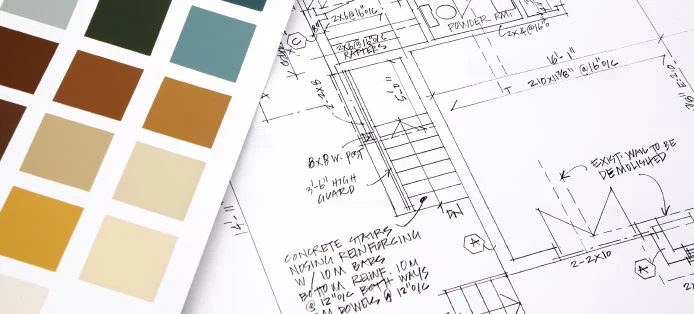 2x6@16"O/C
POWDER RM
2x4@16"O/C
2x6@16"O/C
RAFTERS
16'-1"
210x11 7/8" @16"O/C
5'-0"
8x8 W. POST
3'-6" HIGH
GUARD
EXIST. WALL TO BE
DEMOLISHED
DN
CONCRETE STAIRS
NOSING REINFORCING
W/ 10M BARS
BOTTOM REINF. 10M
@ 12"O/C BOTH WAYS
DOWELS @ 12"O/C
A
2-2x10
A
14'-11"